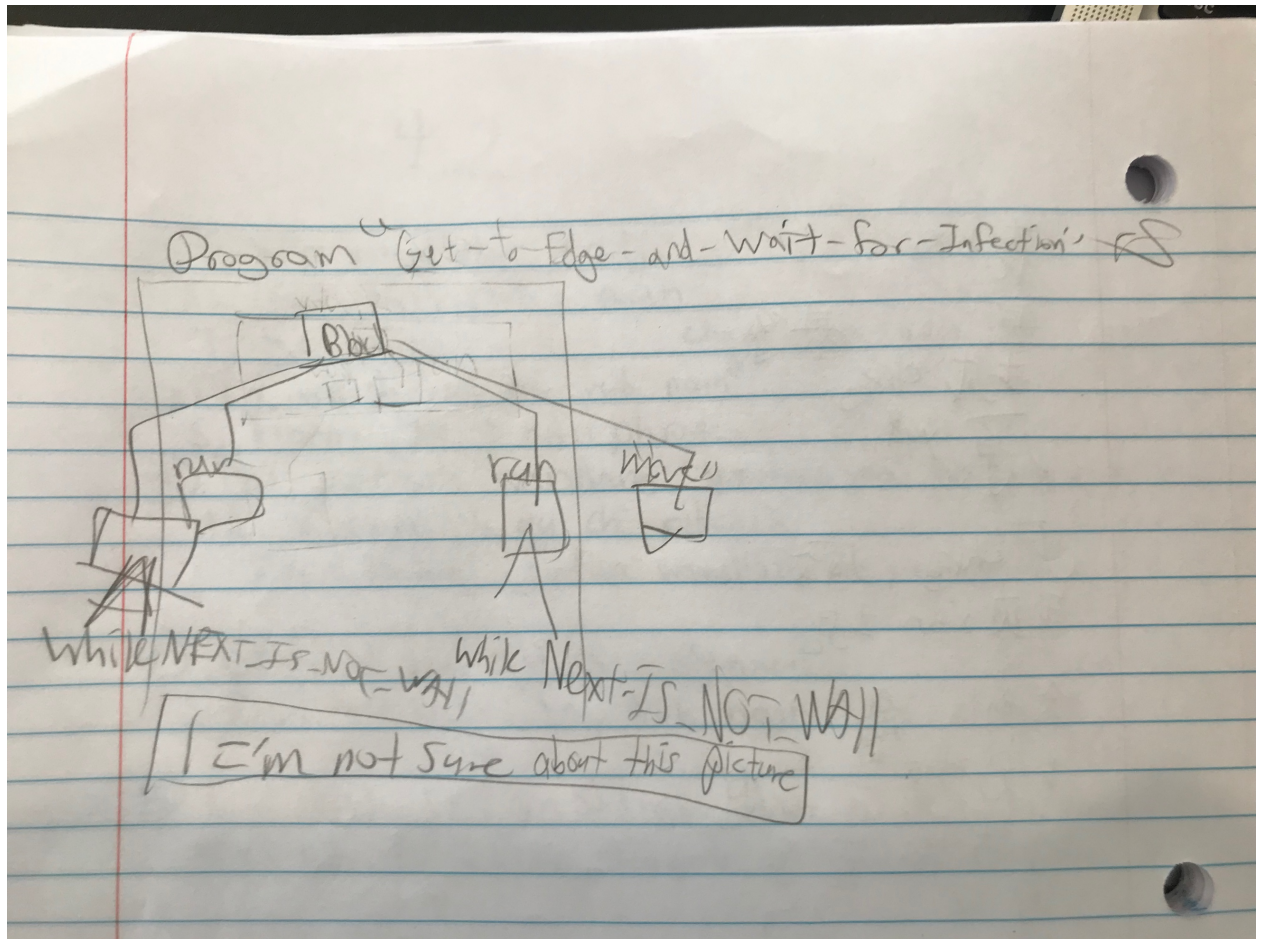 Program "Get-to-Edge-and-Wait-for-Infection"
Block
run
run
Move
While NEXT_Is_NOT_WAll
While Next-Is_NOT_WAll
I'm not sure about this picture